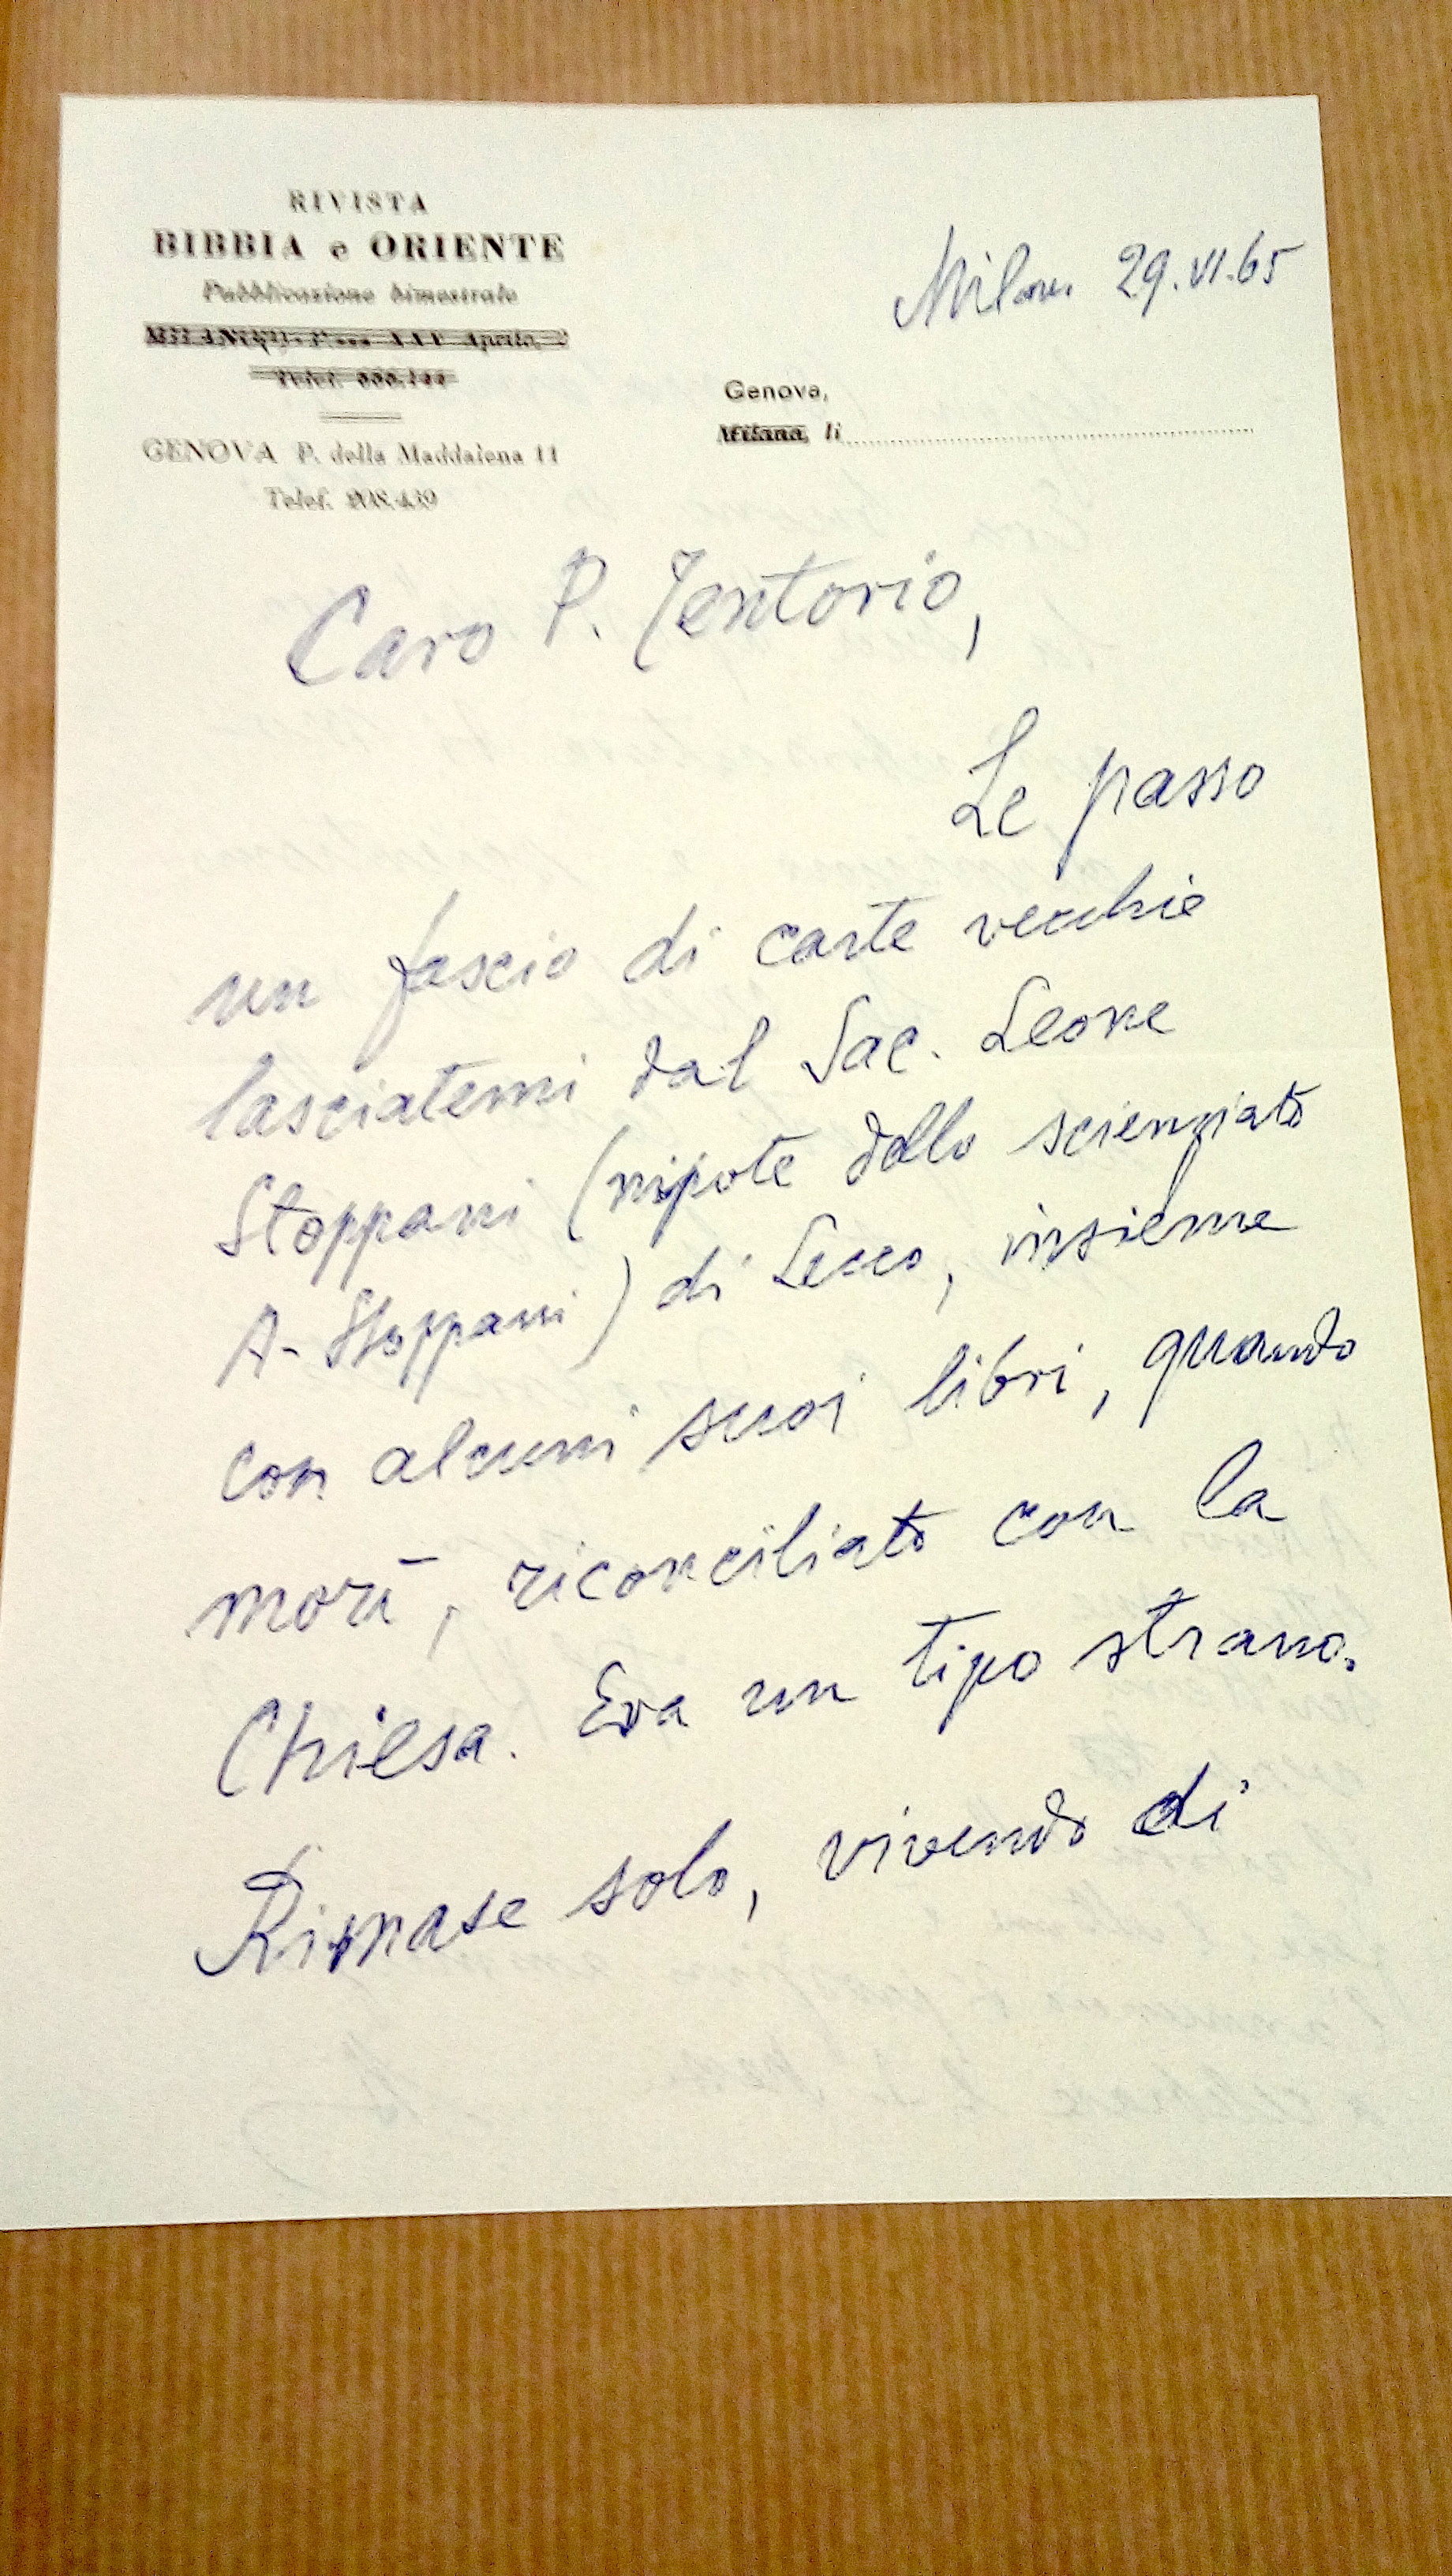 RIVISTA
BIBBIA e ORIENTE
Pubblicazione bimestrale
MILANO - P.zza XXV Aprile, 2
Telef.
GENOVA P. della Maddalena 11
Telef. 208.439
Milano 29.VI.65
Genova,
Milano, li
Caro P. Tentorio,
Le passo
un fascio di carte vecchie
lasciatemi dal Sac. Leone
Stoppani (nipote dello scienziato
A. Stoppani) di Lecco, insieme
con alcuni suoi libri, quando
morì, riconciliato con la
Chiesa. Era un tipo strano.
Rimase solo, vivendo di